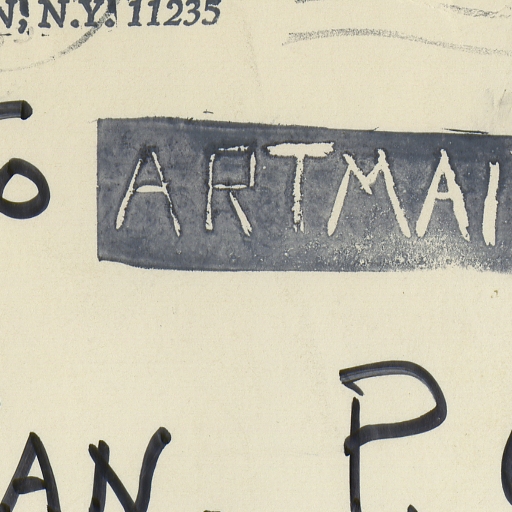 N, N.Y. 11235
ARTMAI
AN. P.